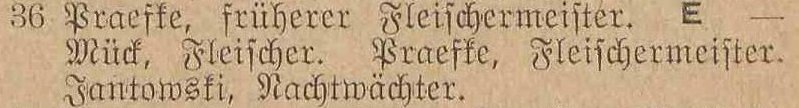 36 Praefke, früherer Fleischermeister. E —
Mück, Fleischer. Praefke, Fleischermeister.
Jantowski, Nachtwächter.